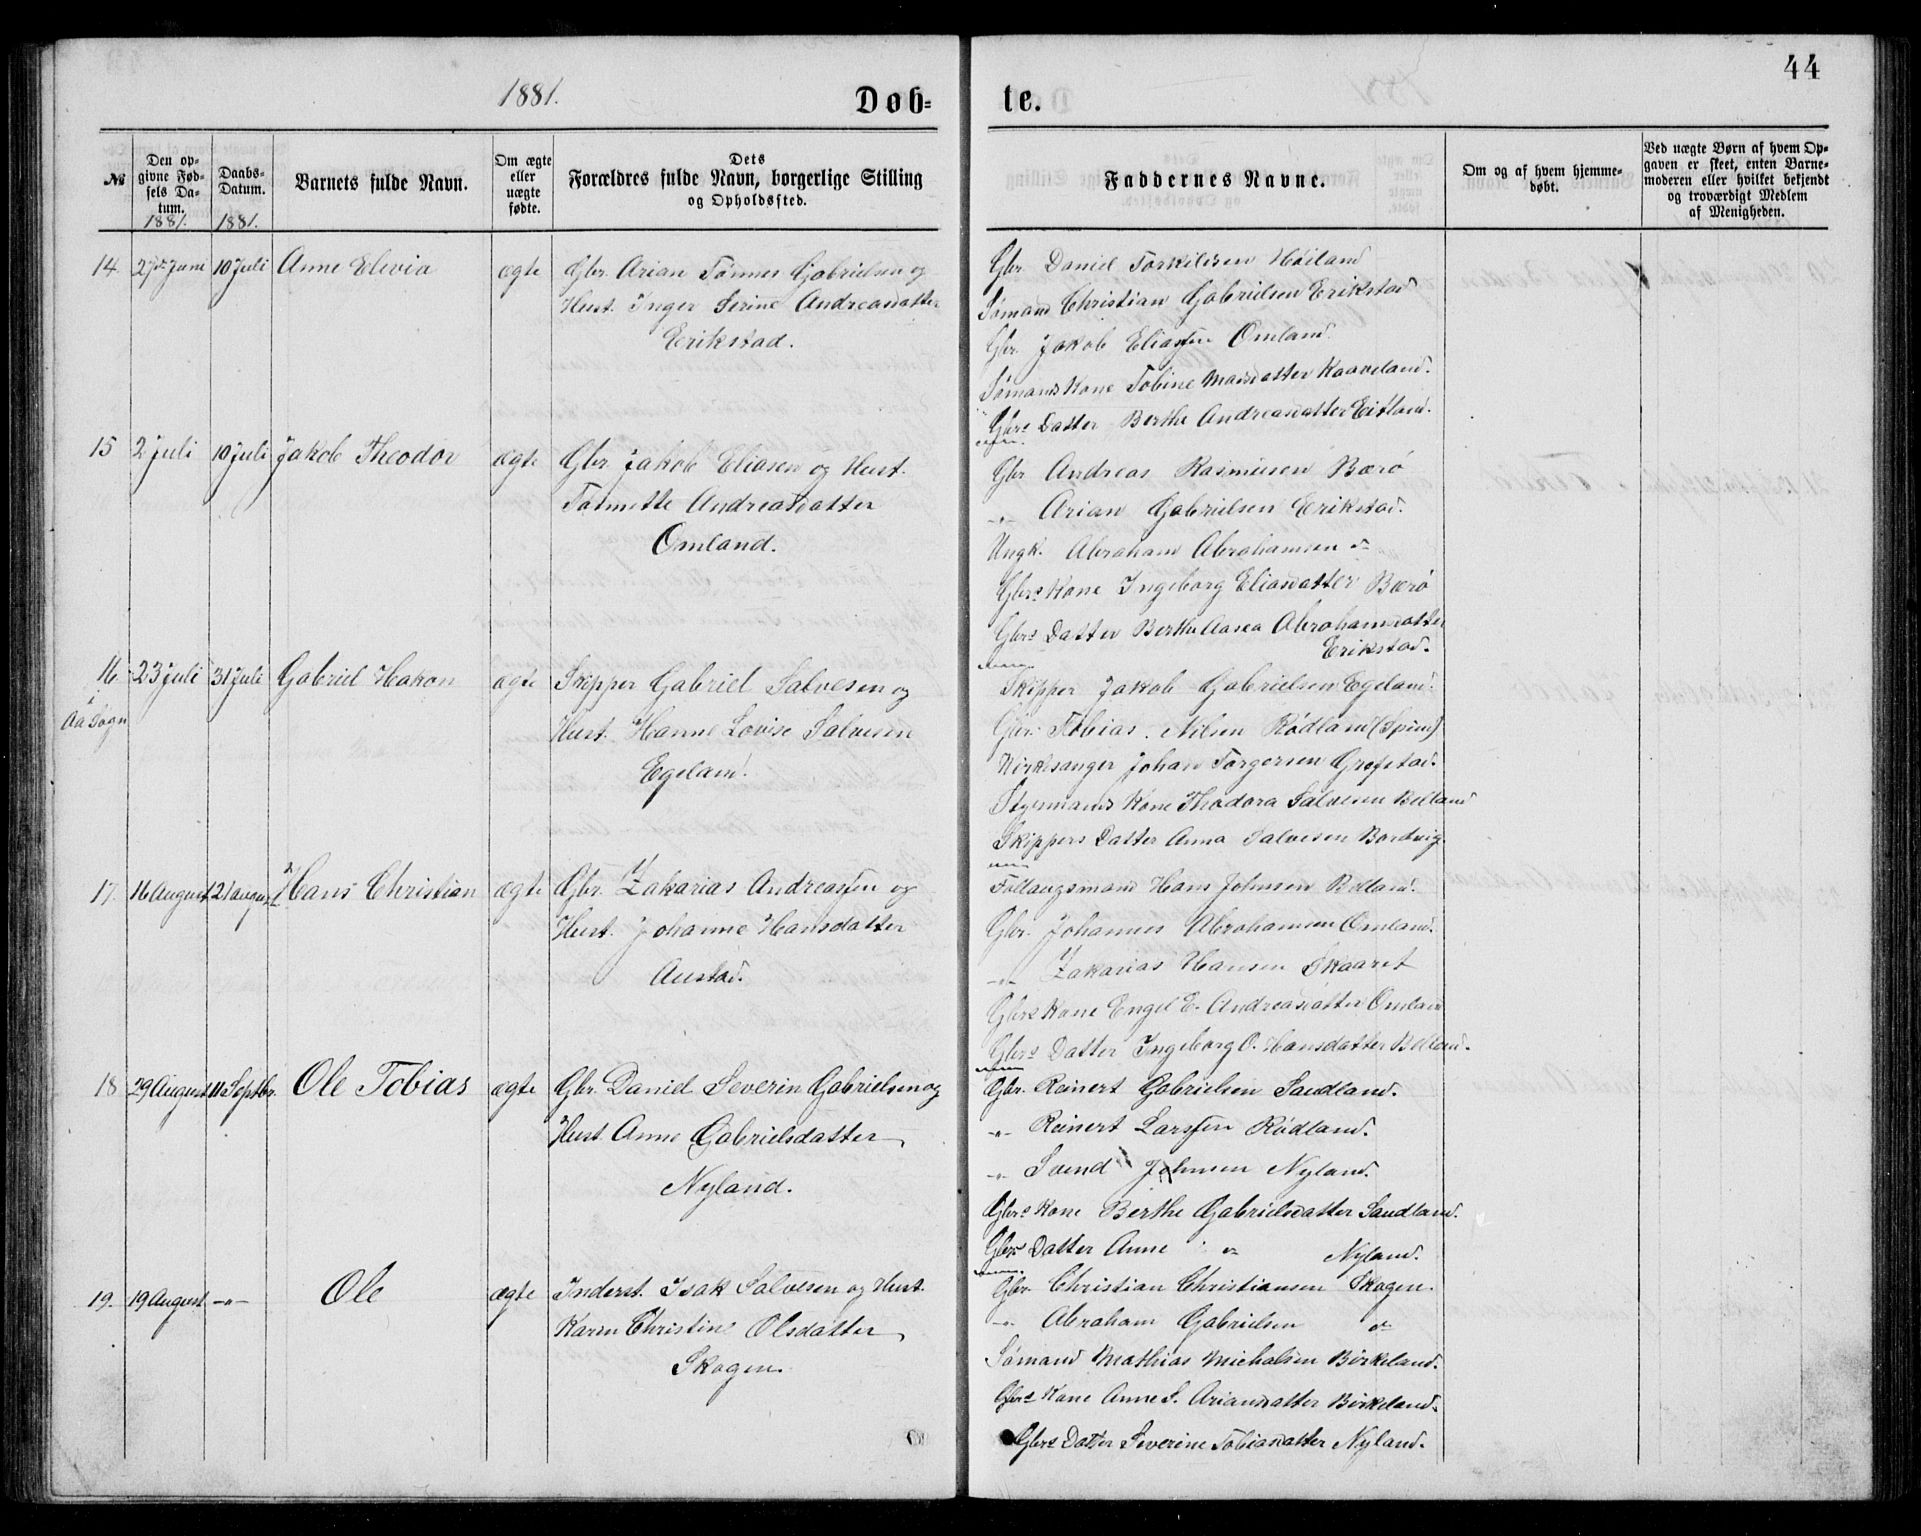 44
1881.
Døb=
te.
№
Den op-
givne Fød-
sels Da-
tum.
1881.
Daabs-
Datum.
1881.
Barnets fulde Navn.
Om ægte
eller
uægte
fødte.
Dets
Forældres fulde Navn, borgerlige Stilling
og Opholdssted.
Faddernes Navne.
Om og af hvem hjemme-
døbt.
Ved uægte Børn af hvem Op-
gaven er skeet, enten Barne-
moderen eller hvilket bekjendt
og troværdigt Medlem
af Menigheden.
14 27de Juni 10 Juli Anne Elevia ægte Gbr. Arian Tønnes Gabrielsen og
Hust. Inger Serine Andreasdatter
Erikstad.
Gbr. Daniel Torkildsen Høiland
Sømand Christian Gabrielsen Erikstad
Gbr. Jakob Eliassen Omland.
Sømands Kone Tobine Madsdatter Kaaveland.
Gbrs Datter Berthe Andreasdatter
15 2 Juli 10 Juli Jakob Theodor ægte Gbr. Jakob Eliasen og Hust.
Tønnette Andreasdatter
Omland.
Gbr Andreas Rasmusen Bærø
-„- Arian Gabrielsen Erikstad.
Ungk. Abraham Abrahamsen do
Gbrs Kone Ingeborg Eliasdatter Bærø
Gbrs Datter Berthe Aasea Abrahamsdatter
Erikstad.
16 23 Juli 31 Juli Gabriel Hakon ægte Skipper Gabriel Salvesen og
i
Aa Sogn
Hust. Hanne Lovise Salvesen
Egeland.
Skipper Jakob Gabrielsen Egeland.
Gbr. Tobias Nilsen Rødland (Spind)
Kirkesanger Johan Torgersen Grefstad.
Styrmands Kone Theodora Salvesen Belland
Skippers Datter Anna Salvesen Bordvig.
17. 16 August 21 August Hans Christian ægte Gbr. Zakarias Andreassen og
Hust. Johanne Hansdatter
Austad.
Føllaugsmand Hans Johnsen Belland.
Gbr. Johannes Abrahamsen Omland.
-„- Zakarias Hansen Skaaret
Gbrs Kone Engel E. Andreasdatter Omland
Gbrs Datter Ingeborg O. Hansdatter Belland.
18 29 August 11 Septbr. Ole Tobias ægte Gbr. Daniel Severin Gabrielsen og
Hust. Anne Gabrielsdatter
Nyland.
Gbr. Reinert Gabrielsen Sandland.
-„- Reinert Larssen Rødland.
-„- Svend Johnsen Nyland.
Gbrs Kone Berthe Gabrielsdatter Sandland.
Gbrs Datter Anne do Nyland.
19. 19 August -„- Ole ægte Inderst. Isak Salvesen og Hust.
Karen Christine Olsdatter
Skogen.
Gbr. Christian Christiansen Skogen.
-„- Abraham Gabrielsen do
Sømand Mathias Michalsen Birkeland.
Gbrs Kone Anne S. Ariansdatter Birkeland.
Gbrs Datter Severine Tobiasdatter Nyland.